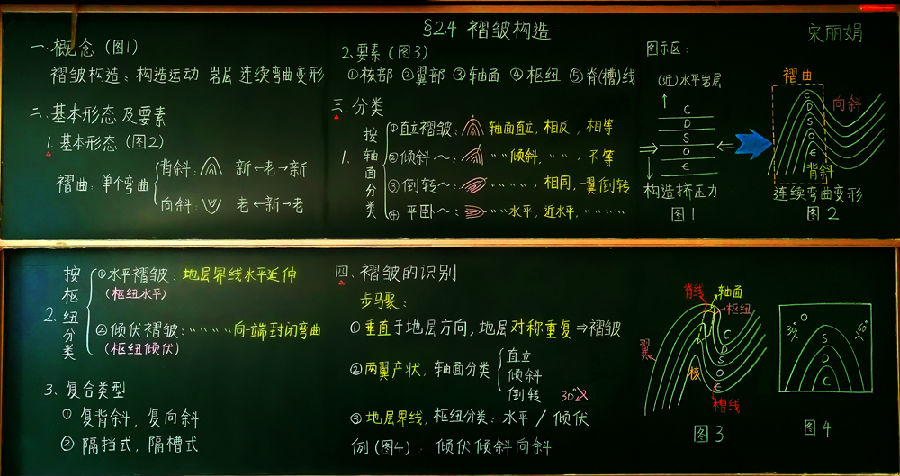 §2.4 褶皱构造
宋丽娟
一.概念(图1)
褶皱构造：构造运动 岩层 连续弯曲变形
二.基本形态及要素
1.基本形态(图2)
褶曲：单个弯曲
背斜： 新←老→新
向斜： 老←新→老
2.要素(图3)
①核部 ②翼部 ③轴面 ④枢纽 ⑤脊(槽)线
三.分类
1.
按轴面分类
①直立褶皱： 轴面直立，相反，相等
②倾斜～： 〃〃倾斜，〃〃，不等
③倒转～： 〃〃〃，相同，一翼倒转
④平卧～： 〃〃水平，近水平，〃〃〃
图示区：
(近)水平岩层
C
D
S
O
Є
构造挤压力
图1
褶曲
向斜
C
D
S
O
Є
背斜
连续弯曲变形
图2
2.
按枢纽分类
①水平褶皱：地层界线水平延伸
(枢纽水平)
②倾伏褶皱：〃〃〃向一端封闭弯曲
(枢纽倾伏)
3.复合类型
①复背斜，复向斜
②隔挡式，隔槽式
四.褶皱的识别
步骤：
①垂直于地层方向，地层对称重复⇒褶皱
②两翼产状，轴面分类
直立
倾斜
倒转
30°
③地层界线，枢纽分类：水平/倾伏
例(图4)：倾伏倾斜向斜
脊线
轴面
枢纽
翼
核
C
D
S
O
Є
槽线
图3
O
S
D
C
30°
图4